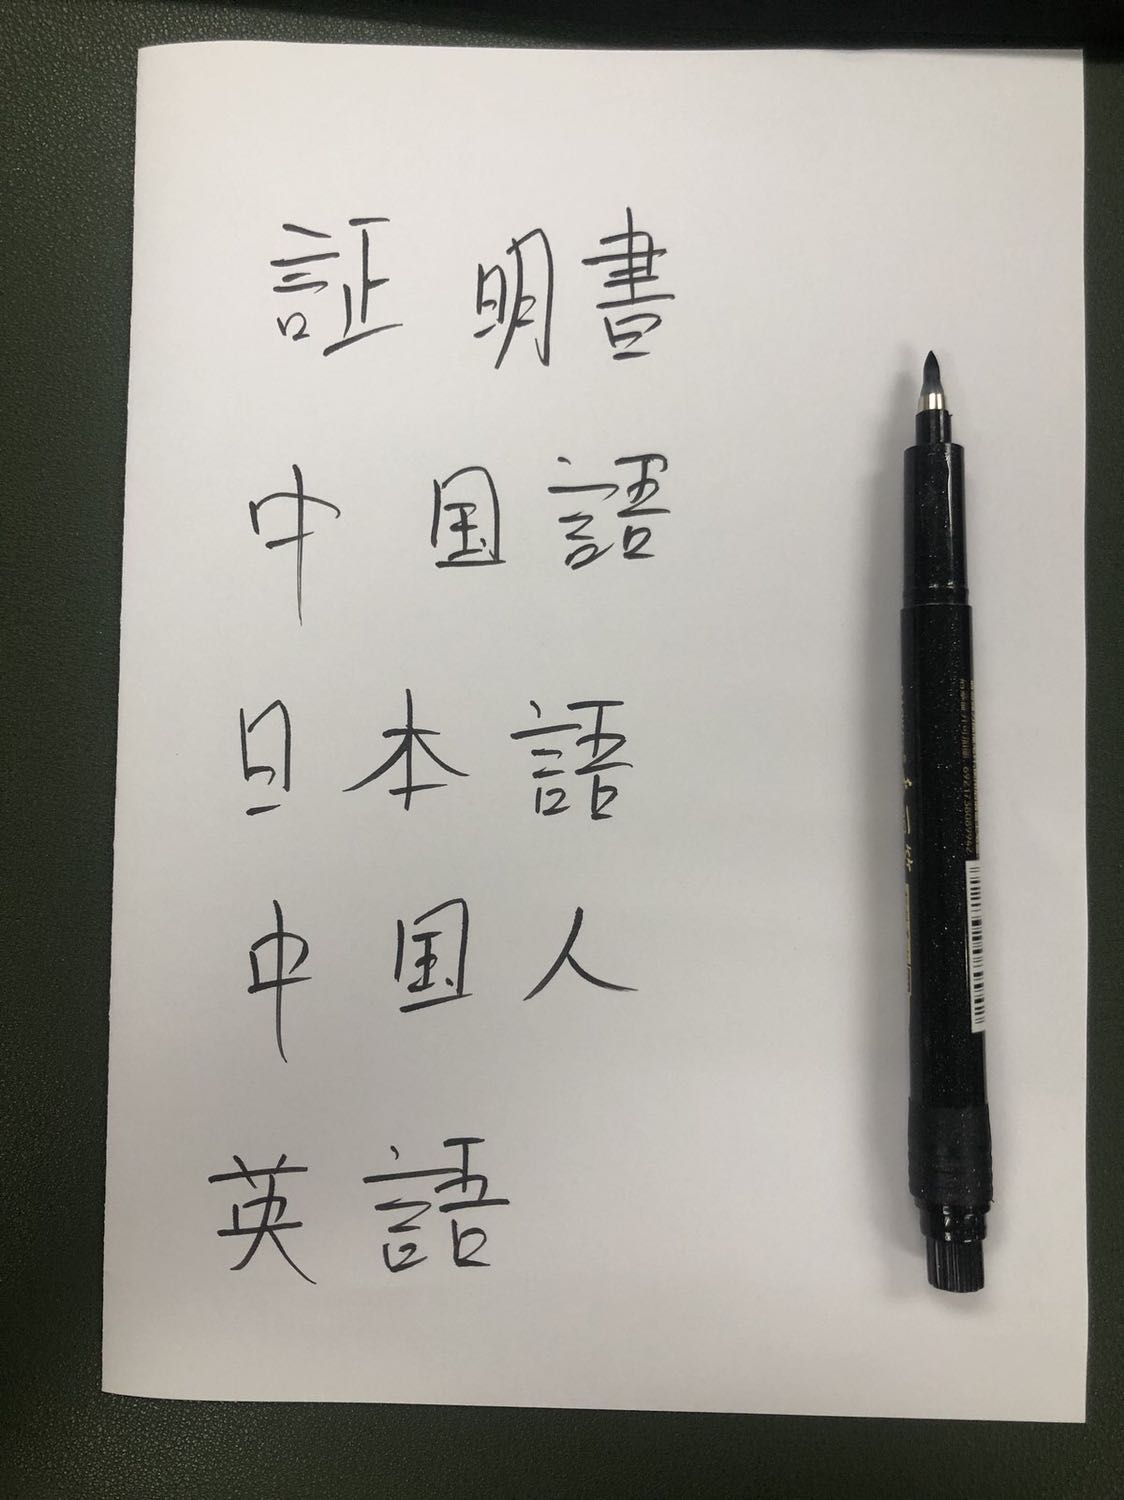 証明書
中国語
日本語
中国人
英語